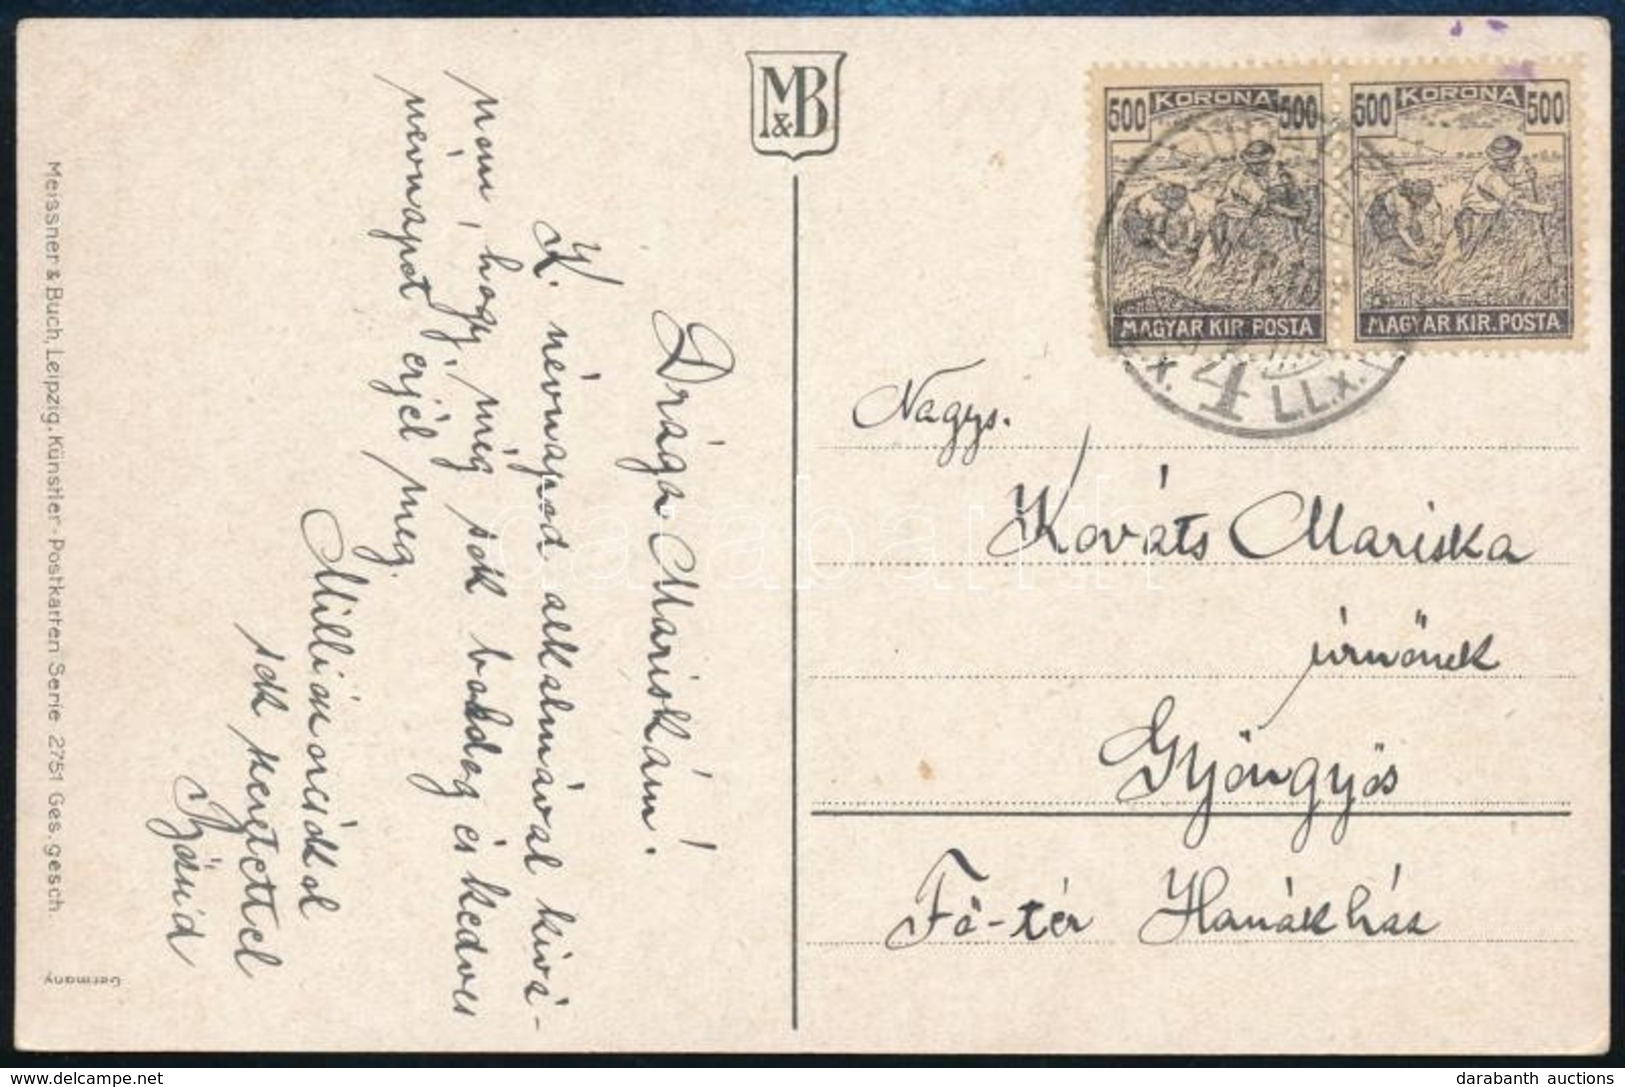 M&B
500 KORONA 500
MAGYAR KIR. POSTA
500 KORONA 500
MAGYAR KIR. POSTA
4
L.L.x.
Drága Mariskám!
K. névnapod alkalmával kivá-
nom, hogy még sok boldog és kedves
nevnapot érjél meg.
Milliószor csókol
sok szeretettel
Nagys.
Kováts Mariska
úrnőnek
Gyöngyös
Fő-tér Hanákház
Meissner & Buch, Leipzig. Künstler-Postkarten Serie 2751 Ges. gesch.
Germany
darabanth
delcampe.net
darabanth auctions